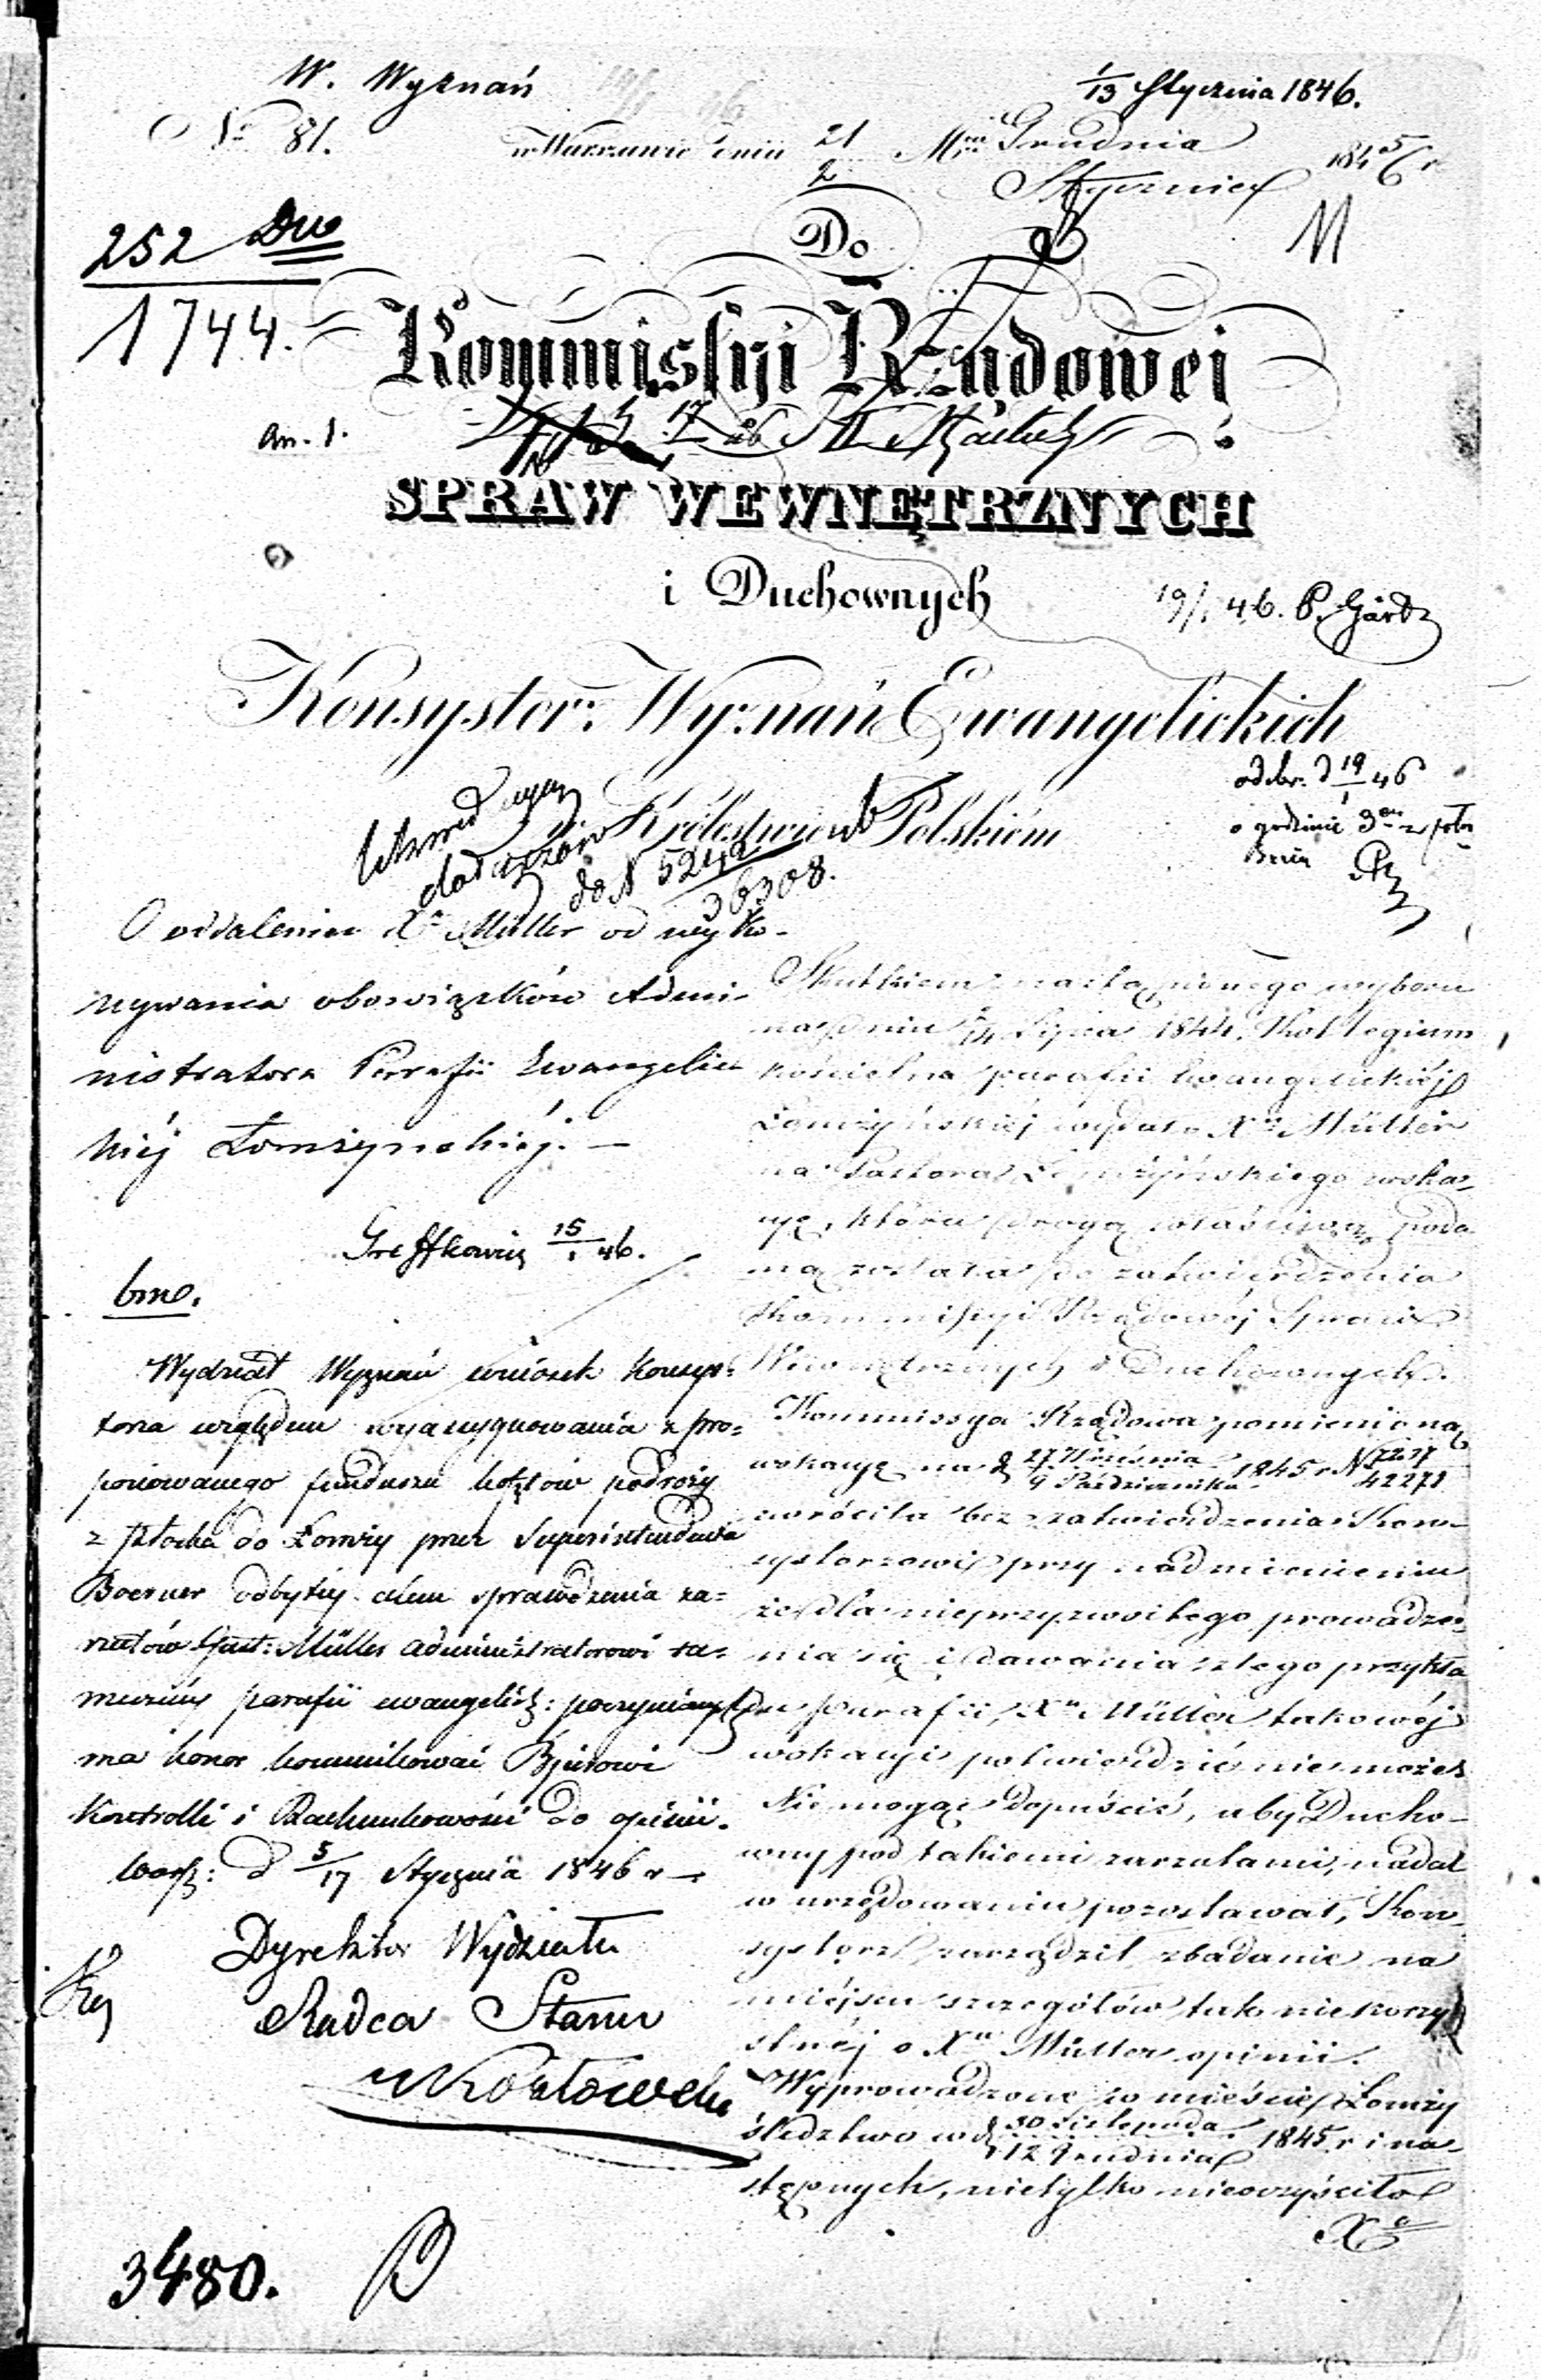 W. Wyznań
1/13 Stycznia 1846.
№ 81.
w Warszawie dnia 21/2 Mca Grudnia/Stycznia 1845/6 r
252 Duo
1744.
Do
Kommissyi Rządowej
an. 1.
SPRAW WEWNĘTRZNYCH
i Duchownych
19/1 46. P. Gärtz
Konsystorz Wyznań Ewangelickich
w Królestwie Polskiém
odebr. d 19/1 46
o godzinie 3ej z poł
do N 5242/36308.
O oddalenie Xa Müller od wyko-
nywania obowiązków Admi-
nistratora Parafii Ewangelic
kiéj Łomżyńskiéj. —
Greffkowicz 15/1 46.
bmo.
Wydział Wyznań wniosek Konsys-
torza względem wyassygnowania z pro-
ponowanego funduszu kosztów podróży
z Płocka do Łomży przez Superintendenta
Boerner odbytéj celem sprawdzenia za-
rzutów Gust: Müller administratorowi ta-
mecznéj parafii ewangelick: poczynionych
ma honor kommunikować Bjurowi
Kontrolli i Rachunkowości do opinii.
Warsz: d 5/17 Stycznia 1846 r —
Dyrektor Wydziału
Radca Stanu
3480.
Skutkiem nastąpionego wyboru
na dniu 2/14 Lipca 1844. Kollegium
kościelne parafii Ewangelickiéj
Łomżyńskiéj wydało Xu Müller
na Pastora Łomżyńskiego woka-
cyę, która drogą właściwą poda
ną została do zatwierdzenia
Kommissyi Rządowéj Spraw
Wewnętrznych i Duchownych.
Kommissya Rządowa pomienioną
wokacyę na d 27 Września/9 Października 1845 r N 7237/42271
zwróciła bez zatwierdzenia Kon-
systorzowi przy nadmienieniu
że dla nieprzyzwoitego prowadze-
nia się i dawania złego przykła
du parafii, Xu Müller takowéj
wokacyi potwierdzić nie może.
Nie mogąc dopuścić, aby Ducho-
wny pod takiemi zarzutami, nadal
w urzędowaniu pozostawał, Kon-
systorz zarządził zbadanie na
miéjscu szczegółów tak niekorzy
stnéj o Xu Müller opinii.
Wyprowadzone w mieście Łomży
śledztwo w d 30 Listopada/12 Grudnia 1845 r i na-
stępnych, nietylko nieoczyściło
Xa